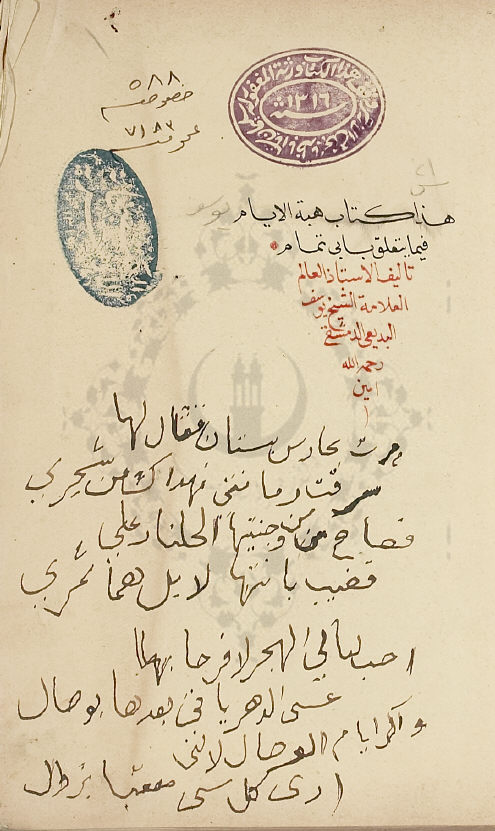 ٥٨٨
خصوصية
عمومية
٧١٨٣
سنة ١٣١٦
هذا كتاب هبة الايام
فيما يتعلق بابي تمام
تاليف الاستاذ العالم
العلامة الشيخ يوسف
البديعي الدمشقي
رحمه الله
امين
مرت بحارس بستان فقال لها
سرقت رمانتي نهداك من شجري
فصاح من وجنتيها الجلنار على
قضيب بانتها لا بل هما ثمري
احب ليالي الهجر لا فرحا بها
عسى الدهر ياتي بعدها بوصال
واكره ايام الوصال لانني
ارى كل شي معقبا بزوال